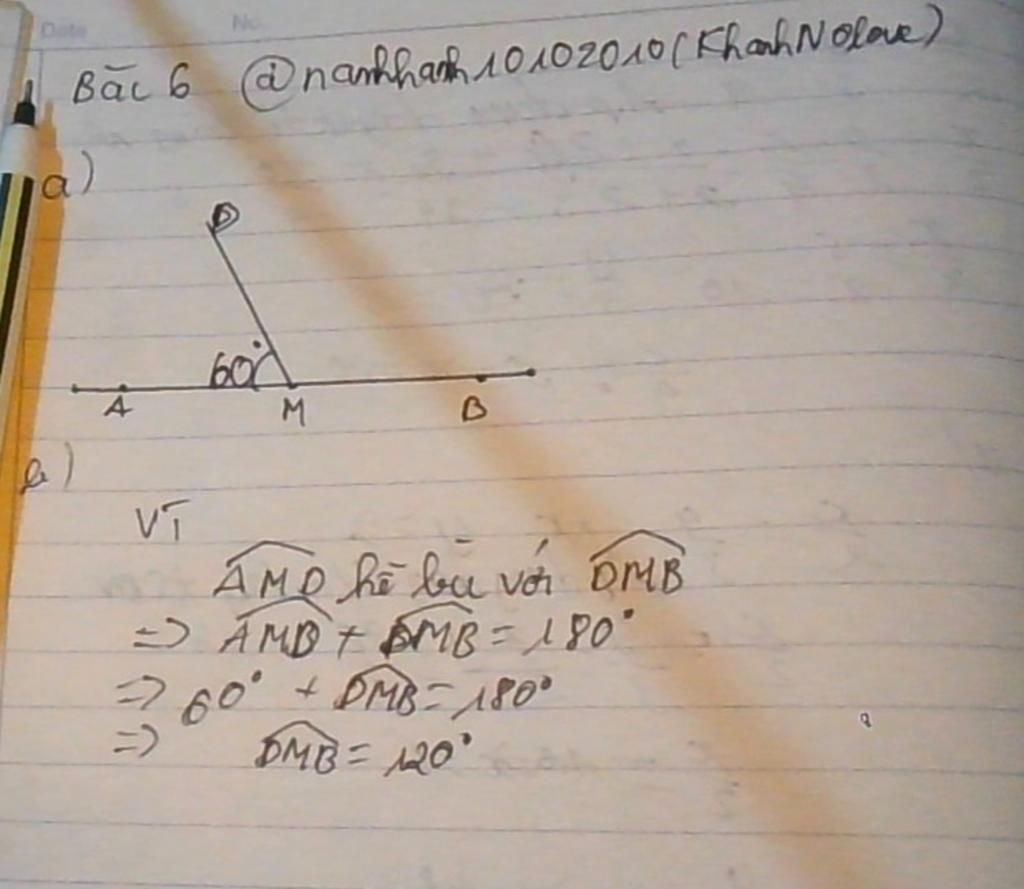 Date No.
Bāc 6 @nanhhanh10102010(KhanhNolove)
a)
D
60°
A M B
b)
Vī
AMD kē bū với DMB
=> AMD + DMB = 180°
=> 60° + DMB = 180°
=> DMB = 120°